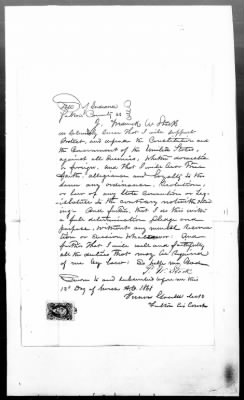 State of Indiana
Fulton County SS
I, Franck W. Stock
do Solemnly Swear that I will support
Protect, and defend the Constitution and
the Government of the United States,
against all Enemies, Whether domestic
or foreign. And that I will bear True
Faith, allegiance and Loyalty to the
Same any ordinance, Resolution,
or Law of any State Convention or Leg-
islature to the contrary notwithstand-
ing. And further that I do this with
a full determination Pledge and
purpose, without any mental Reserva-
tion or Evasion Whatsoever: And
further That I will well and faithfully
all the duties that may be Required
of me by Law: So help me God
Sworn to and subscribed before me this
12th Day of A.D. 1861
Fulton Co